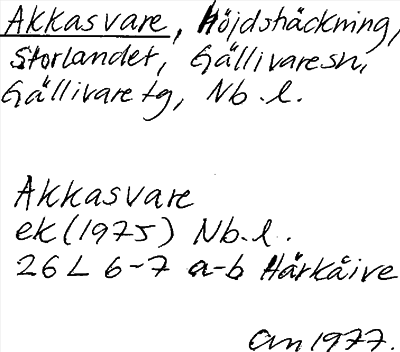 Akkasvare, Höjdsträckning,
Storlandet, Gällivare sn,
Gällivare tg, Nb.l.
Akkasvare
ek (1975) Nb.l.
26 L 6-7 a-b Hårkåive
An 1977.